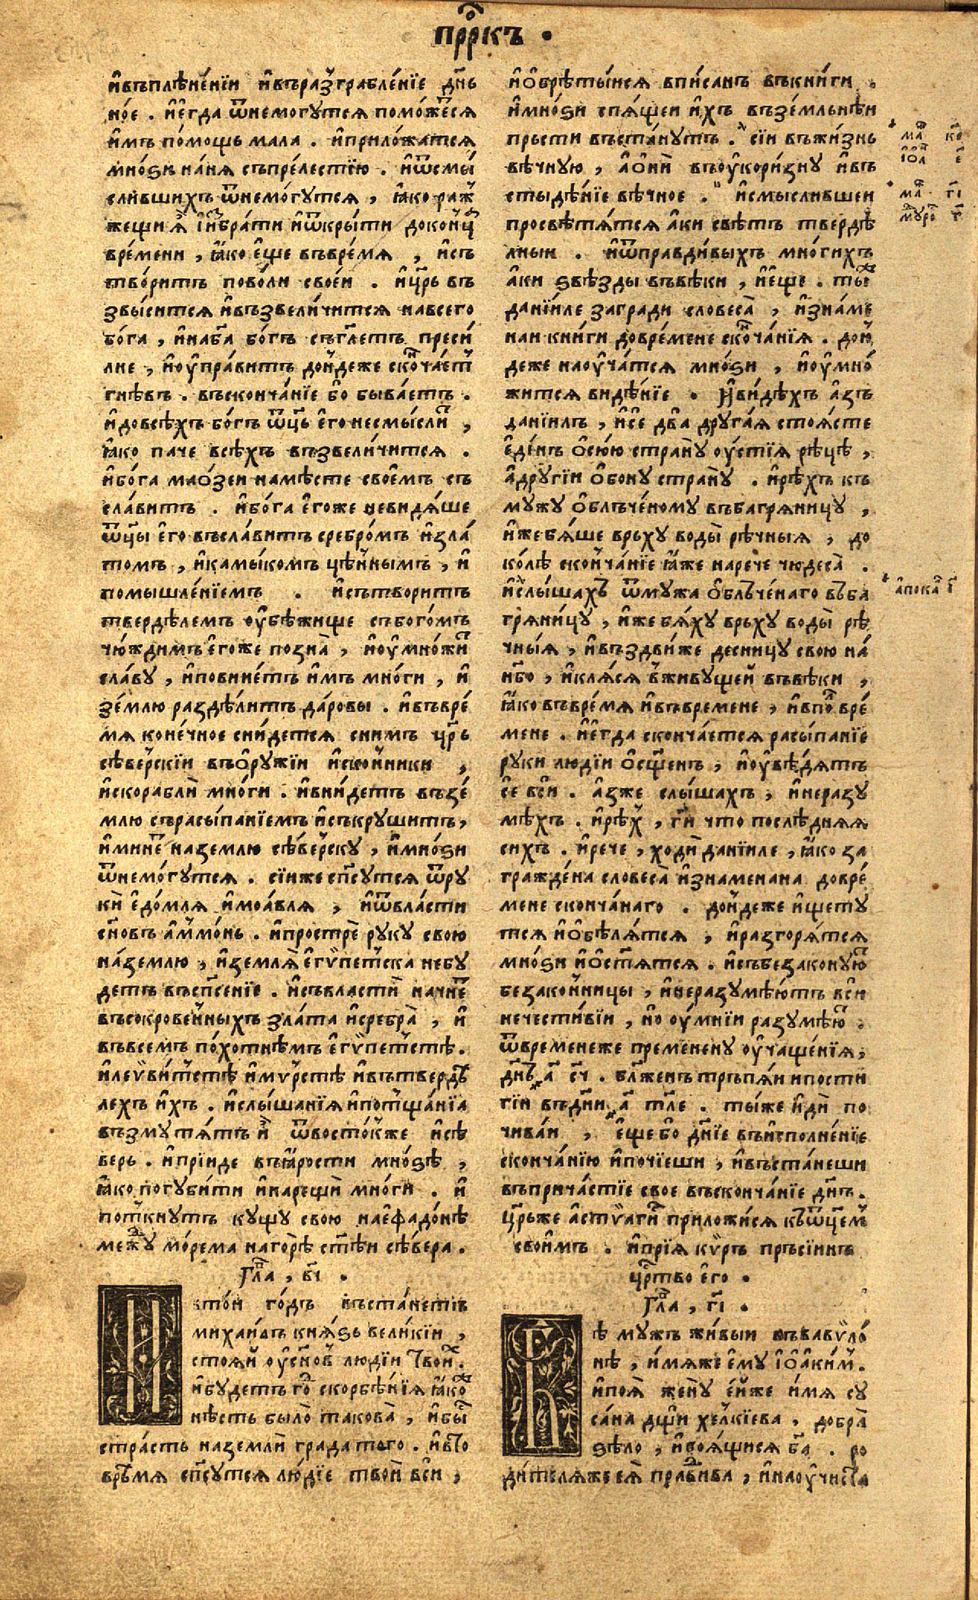 прⷪ҇ркъ .
ивъплѣнении ивъразграбленїе днь
ное . иегда ѿнемогутся поможеся
имъ помощь мала . иприложатся
мноѕи наня съпрелестїю . иѿсмы
слившихъ ѿнемогутся , ꙗко раж
времени , ꙗко еще въвремя , исъ
творитъ поволи своеи . ицр҃ь въ
звысится ивъзвеличится навсего
бога , инаба богъ съглетъ преси
лие , иоуправитъ дондеже скочает
гнѣвъ . въскончанїе бо бываетъ .
идовсѣхъ богъ ѿць его несмысли ,
ꙗко паче всѣхъ възвеличится .
ибога маозеи намѣсте своемъ съ
славитъ . ибога егоже невидяше
ѿцы его въславитъ сребромъ изла
томъ , икамыкомъ цѣннымъ , и
помышленїемъ . исътворитъ
твердѣлемъ оубѣжище събогомъ
чюждимъ егоже позна , иоумножи
славу , иповинетъ имъ многи , и
землю раздѣлитъ даровы . ивъвре
мя конечное снидется снимъ цр҃ь
сѣверскїи въоружїи искойники ,
искорабли многи . ивнидетъ възе
млю сърасыпанїемъ исъкрушитъ ,
имине наземлю сѣверску , имноѕи
ѿнемогутся . сїиже сп҃сутся ѿру
ки едомля имоавля , иѿвласти
сн҃овъ аммонь . ипростре руку свою
наземлю , иземля египетска небу
детъ въсп҃сенїе . исъвласти начне
въсокровенныхъ злата исребра , и
въвсемъ похотнѣмъ египетстѣ .
илеѵвитстѣ имурстѣ ивътверд
лехъ ихъ . ислышанїя ипотщанїа
възмутятъ и ѿвостокже исѣ
верь . ипрїиде въꙗрости мноѕѣ ,
ꙗко погубити инарещи многи . и
поткнутъ кущу свою наефадонѣ
межу морема нагорѣ ст҃ѣи сѣвера .
гла , в҃і .
Втои годъ въстанетів
михаилъ князь великїи ,
стояи оусновъ людїи твои .
ибудетъ го скорбѣнїя ꙗко
нѣсть было такова , ибы
страсть наземли града того . ивто
время сп҃сутся людїе твои вси ,
иобрѣтыися вписанъ въкниги .
имноѕи спящеи ихъ въземльнѣи
прьсти въстанутъ . сїи въжизнь
вѣчную , аони въоукоризну ивъ
стыденїе вѣчное . исмыслившеи
просвѣтятся аки свѣтъ твердѣ
лныи . иѿправдивыхъ многихъ
аки ѕвѣзды въвѣки , иеще . ты
данїиле загради словеса , изнаме
наи книги довремене скочанїя . дон
деже наоучатся мноѕи , иоумно
жится видѣнїе . Ивидѣхъ азъ
данїилъ , исе два другая стоясте
единъ осюю страну оустїя рѣцѣ ,
адругїи обону страну . ирѣхъ къ
мужу облъченому въбагряницу ,
иже бяше врьху воды рѣчныя , до
колѣ скончанїе ꙗже нарече чюдеса .
ислышахъ ѿмужа облъченаго въба
гряницу , иже бяху врьху воды рѣ
чныя , ивъздвиже десницу свою на
нб҃о , иклятся вживущеи въвѣки ,
ꙗко въвремя ивъвремене , ивпо вре
мене . иегда скончается расыпанїе
руки людїи осщенъ , иоувѣдятъ
се вси . азже слышахъ , инеразу
мѣхъ . ирѣх , гн҃и что послѣдняя
сихъ . ирече , ходи данїиле , ꙗко за
граждена словеса изнаменана довре
мене скончанаго . дондеже ищету
тся иобѣлятся , иразгорятся
мноѕи иостятся . исъбезаконую
безаконницы , инеразумѣютъ вси
нечестивїи , но оумнїи разумѣю .
ѿвременеже премененїю оучащенїя ,
днъ ,а сч҃ . блаженъ тръпяи ипости
гїи въднии ,а тле . тыже иди по
чиваи , еще бо днїе въисполненїе
скончанїю ипочїеши , ивъстанеши
въпричастїе свое въскончанїе днъ .
Цр҃ьже астѵаги приложися къѿцемъ
своимъ . ипрїя кѵръ прьсїинъ
цртво его .
гла , г҃і .
Бѣ мужъ живыи въвавѵло
нѣ , имяже ему іоакимъ .
ипоя жену ейже имя су
сана дщи хелкїева , добра
ѕѣло , ибоящися ба . ро
дителяже ея праведнва , инаоучиста
апока